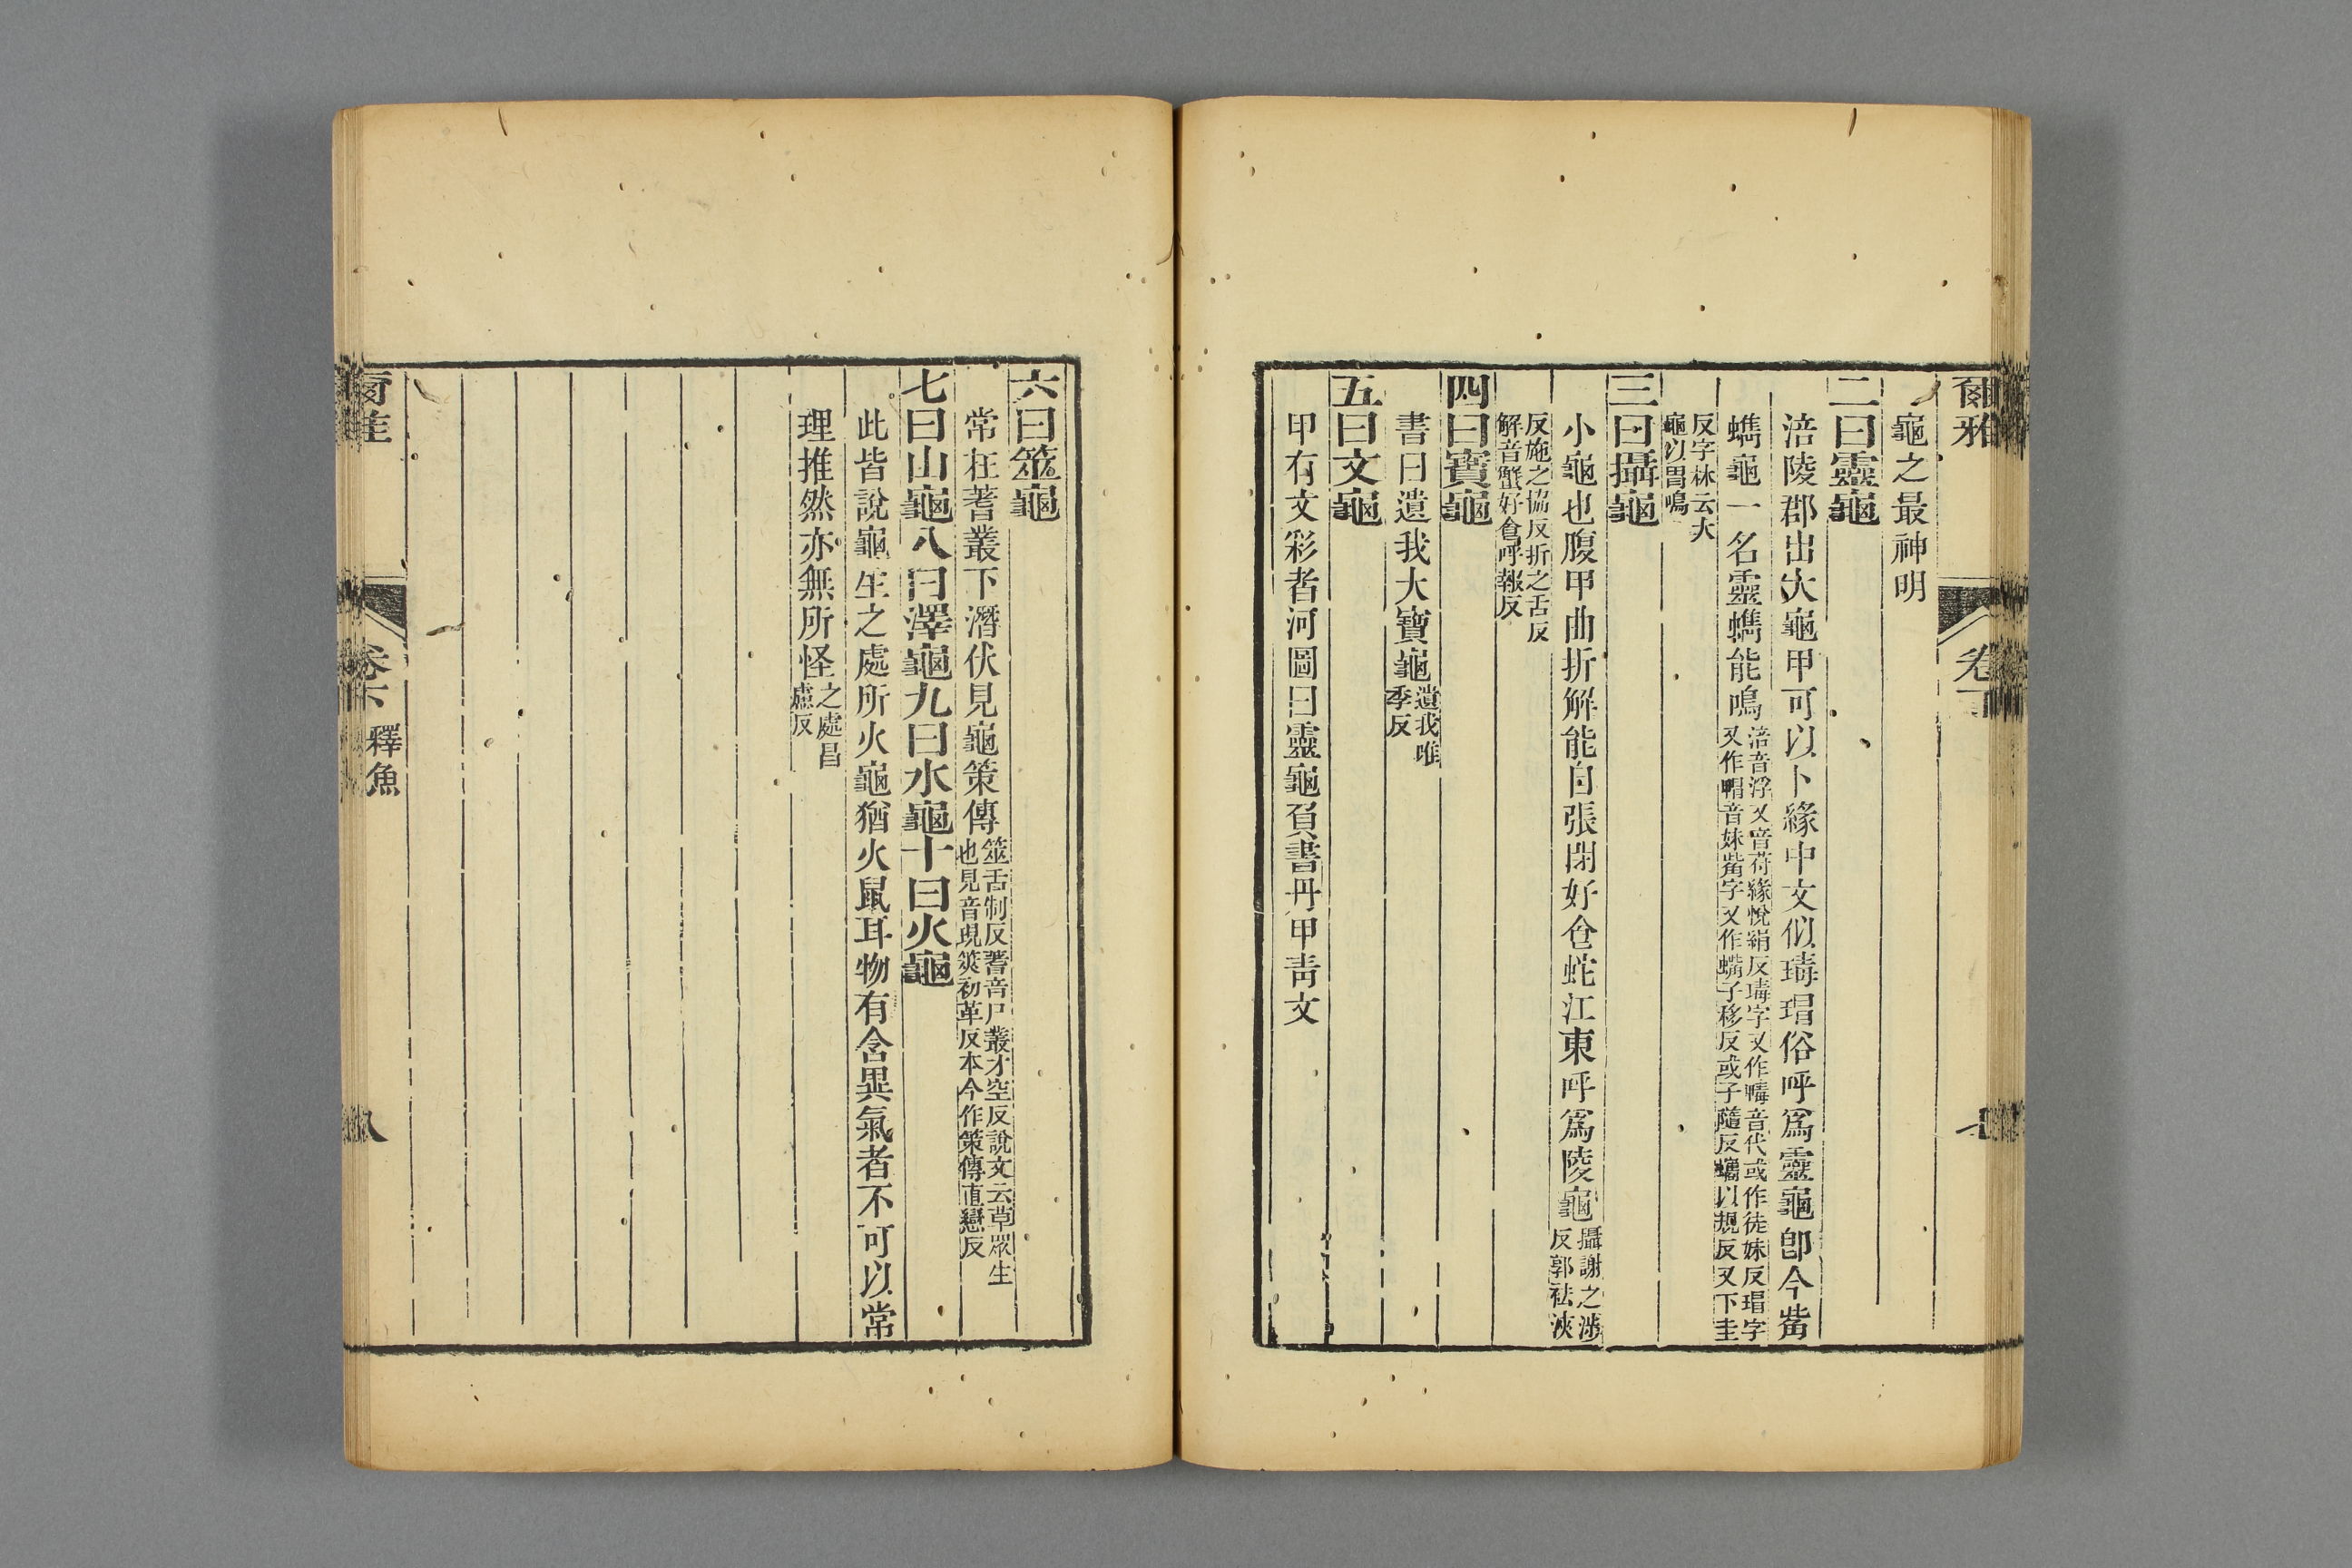 爾雅
卷下
七
龜之最神明
二曰靈龜
涪陵郡出大龜甲可以卜緣中文似瑇瑁俗呼爲靈龜卽今觜
蠵龜一名靈蠵能鳴
涪音浮又音符緣悅絹反瑇字又作蝳音代或作徒妹反瑁字
又作㻺音妹觜字又作蟕子移反或子隨反蠵以規反又下圭
反字林云大
龜以胃鳴
三曰攝龜
小龜也腹甲曲折解能自張閉好食蛇江東呼爲陵龜
攝謝之涉
反郭袪浹
反施之協反折之舌反
解音蟹好食呼報反
四曰寶龜
書曰遺我大寶龜
遺我唯
季反
五曰文龜
甲有文彩者河圖曰靈龜負書丹甲靑文
六曰筮龜
常在蓍叢下潛伏見龜策傳
筮舌制反蓍音尸叢才空反說文云草眾生
也見音現筴初革反本今作策傳直戀反
七曰山龜八曰澤龜九曰水龜十曰火龜
此皆說龜生之處所火龜猶火鼠耳物有含異氣者不可以常
理推然亦無所怪
之處昌
慮反
爾雅
卷下
釋魚
八